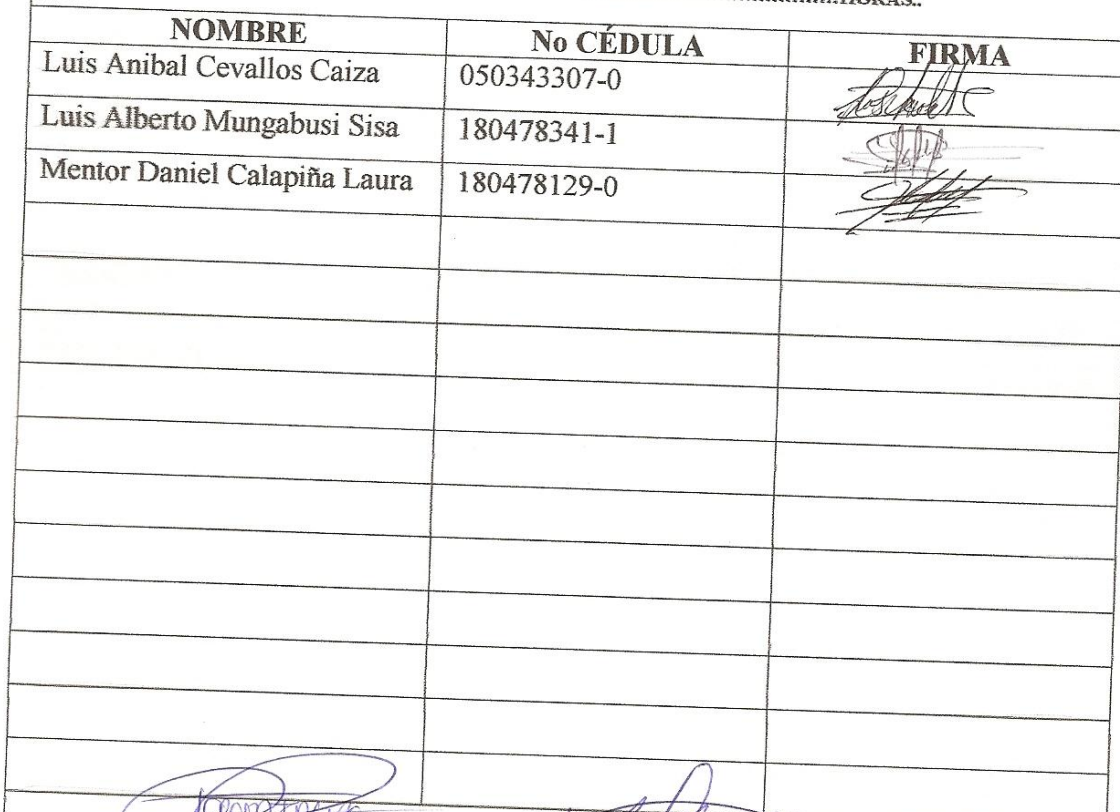 HORAS..
NOMBRE No CÉDULA FIRMA
Luis Anibal Cevallos Caiza 050343307-0
Luis Alberto Mungabusi Sisa 180478341-1
Mentor Daniel Calapiña Laura 180478129-0